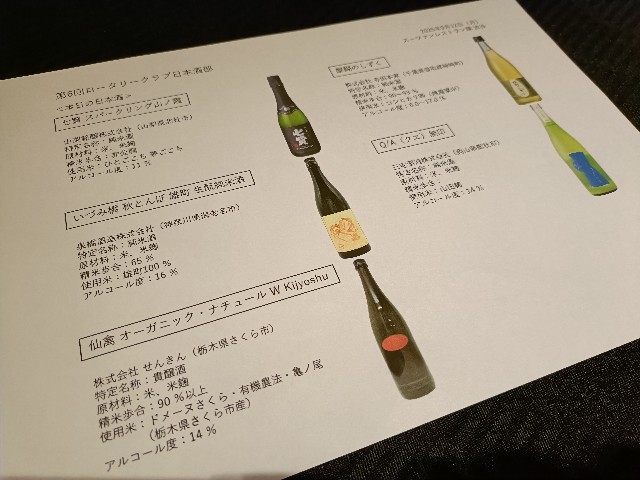 第6回ロータリークラブ日本酒部
＜本日の日本酒＞
七賢 スパークリング山ノ霞
山梨銘醸株式会社（山梨県北杜市）
特定名称：純米酒
原材料：米、米麹
精米歩合：非公開
使用米：ひとごこち 夢ごこち
アルコール度：11 %
いづみ橋 秋とんぼ 雄町 生酛純米酒
泉橋酒造株式会社（神奈川県海老名市）
特定名称：純米酒
原材料：米、米麹
精米歩合：65 %
使用米：雄町100 %
アルコール度：16 %
仙禽 オーガニック・ナチュール W Kijyoshu
株式会社 せんきん（栃木県さくら市）
特定名称：貴醸酒
原材料：米、米麹
精米歩合：90 %以上
使用米：ドメーヌさくら・有機農法・亀ノ尾
（栃木県さくら市産）
アルコール度：14 %
醍醐のしずく
株式会社 寺田本家（千葉県香取郡神崎町）
特定名称：純米酒
原材料：米、米麹
精米歩合：90～93 %
使用米：コシヒカリ
特定名称：純米酒
原材料：米、米麹
精米歩合：
使用米：山田錦
アルコール度：14 %
七賢